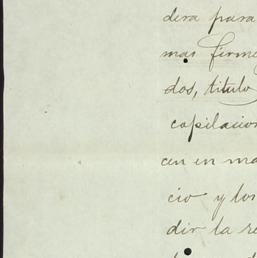 dera para
mas firme
dos, titulo
copilacion
cen en ma
cio y los
dir la re